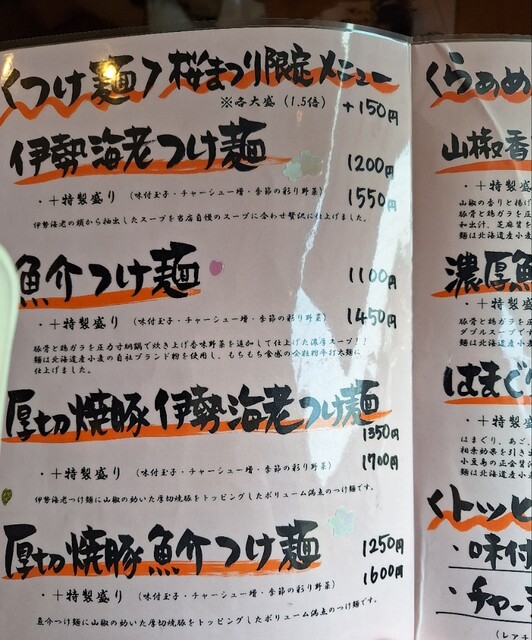 くつけ麺〉桜まつり限定メニュー
※各大盛(1.5倍) +150円
伊勢海老つけ麺 1200円
・+特製盛り(味付玉子・チャーシュー増・季節の彩り野菜) 1550円
伊勢海老の頭から抽出したスープを当店自慢のスープに合わせ贅沢に仕上げました。
魚介つけ麺 1100円
・+特製盛り(味付玉子・チャーシュー増・季節の彩り野菜) 1450円
豚骨と鶏ガラを圧力寸胴鍋で炊き上げ香味野菜を追加して仕上げた濃厚スープ!!
麺は北海道産小麦の自社ブランド粉を使用し、もちもち食感の全粒粉平打太麺に
仕上げました。
厚切焼豚伊勢海老つけ麺
1350円
・+特製盛り(味付玉子・チャーシュー増・季節の彩り野菜) 1700円
伊勢海老つけ麺に山椒の効いた厚切焼豚をトッピングしたボリューム満点のつけ麺です。
厚切焼豚魚介つけ麺 1250円
・+特製盛り(味付玉子・チャーシュー増・季節の彩り野菜) 1600円
魚介つけ麺に山椒の効いた厚切焼豚をトッピングしたボリューム満点のつけ麺です。
くらぁめ
山椒香
・+特
山椒の香りと揚げ
豚骨と鶏ガラを圧
和出汁、芝麻醤を
麺は北海道産小麦
濃厚魚
・+特製
豚骨と鶏ガラを
ダブルスープです
麺は北海道産小
はまぐ
・+特製
はまぐり、あご、
相乗効果を引き出
小豆島の正金醤
麺は北海道産小麦
くトッピ
・味付
・チャー